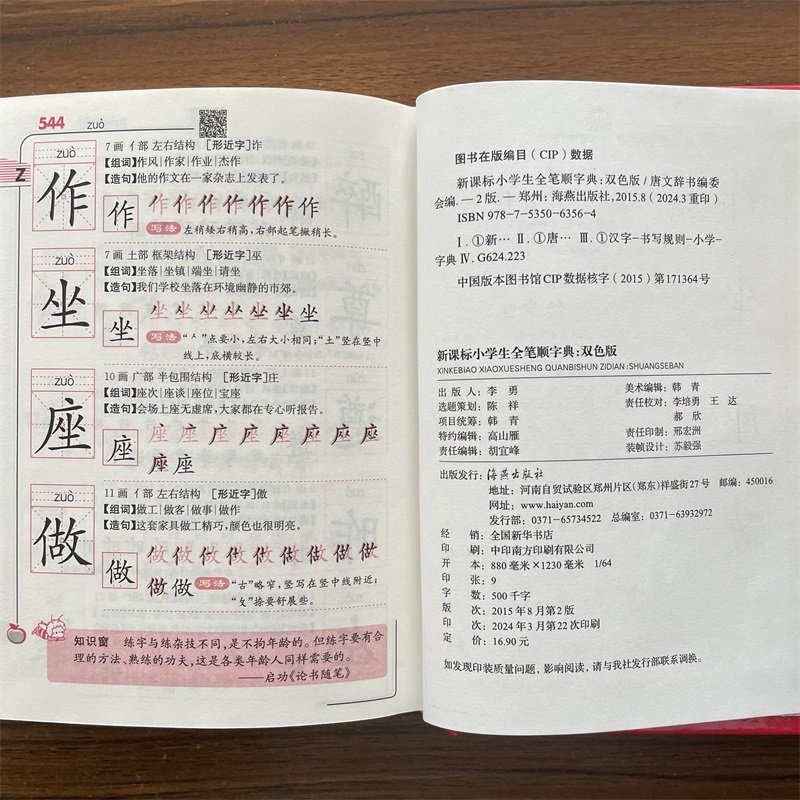 544 zuò
Z
zuò
作
7画 亻部 左右结构 [形近字]诈
【组词】作风|作家|作业|杰作
【造句】他的作文在一家杂志上发表了。
作 作作作作作作作
写法 左稍矮右稍高,右部起笔撇稍长。
zuò
坐
7画 土部 框架结构 [形近字]巫
【组词】坐落|坐镇|端坐|请坐
【造句】我们学校坐落在环境幽静的市郊。
坐 坐坐坐坐坐坐坐
写法 “ ”点要小,左右大小相同;“土”竖在竖中
线上,底横较长。
zuò
座
10画 广部 半包围结构 [形近字]庄
【组词】座次|座谈|座位|宝座
【造句】会场上座无虚席,大家都在专心听报告。
座 座座座座座座座座
座座
zuò
做
11画 亻部 左右结构 [形近字]傲
【组词】做工|做客|做事|做作
【造句】这套家具做工精巧,颜色也很明亮。
做 做做做做做做做做做
做做做 写法 “古”略窄,竖写在竖中线附近;
“攵”捺要舒展些。
知识窗 练字与练杂技不同,是不拘年龄的。但练字要有合
理的方法、熟练的功夫,这是各类年龄人同样需要的。
——启功《论书随笔》
图书在版编目(CIP)数据
新课标小学生全笔顺字典:双色版/唐文辞书编委
会编.—2版.—郑州:海燕出版社,2015.8(2024.3重印)
ISBN 978-7-5350-6356-4
Ⅰ.①新… Ⅱ.①唐… Ⅲ.①汉字-书写规则-小学-
字典 Ⅳ.G624.223
中国版本图书馆CIP数据核字(2015)第171364号
新课标小学生全笔顺字典:双色版
XINKEBIAO XIAOXUESHENG QUANBISHUN ZIDIAN:SHUANGSEBAN
出版人:李 勇 美术编辑:韩 青
选题策划:陈 祥 责任校对:李培勇 王 达
项目统筹:韩 青 郝 欣
特约编辑:高山雁 责任印制:邢宏洲
责任编辑:胡宜峰 装帧设计:苏毅强
出版发行:海燕出版社
地址:河南自贸试验区郑州片区(郑东)祥盛街27号 邮编:450016
网址:www.haiyan.com
发行部:0371-65734522 总编室:0371-63932972
经 销:全国新华书店
印 刷:中印南方印刷有限公司
开 本:880毫米×1230毫米 1/64
印 张:9
字 数:500千字
版 次:2015年8月第2版
印 次:2024年3月第22次印刷
定 价:16.90元
如发现印装质量问题,影响阅读,请与我社发行部联系调换。